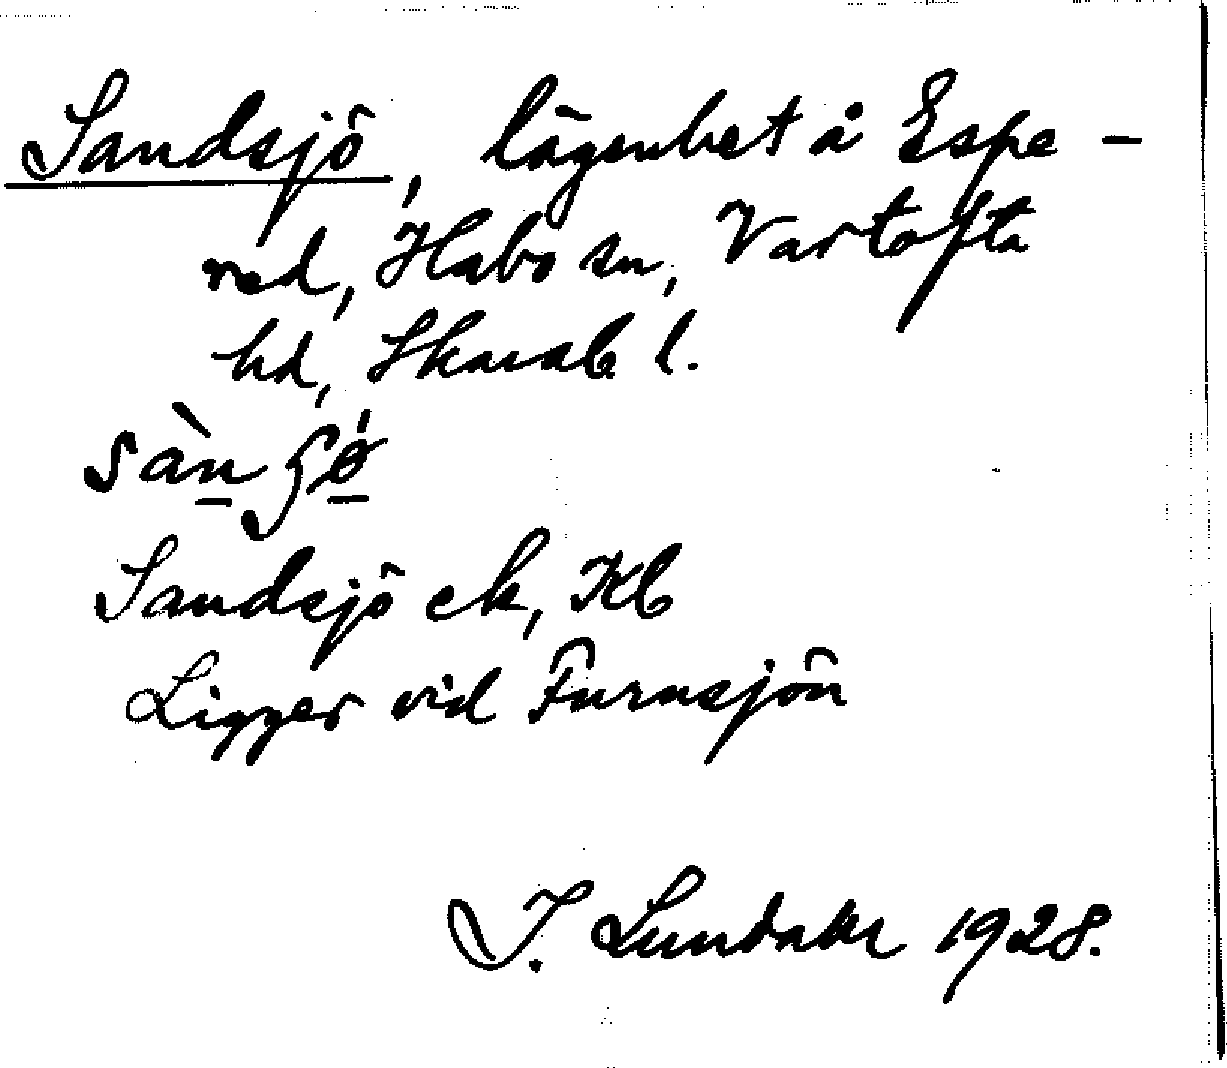 Sandsjö, lägenhet å Espe-
red, Habo sn, Vartofta
hd, Skarab l.
sàn ʃǿ
Sandsjö ek, Kb
Ligger vid Furusjön
J. Lundahl 1928.